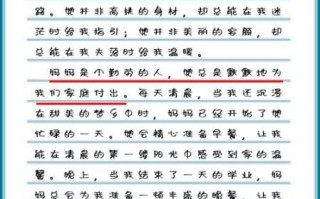 路。她并非高挺的身材，却总能在我迷
茫时给我指引；她并非美丽的容颜，却总
能在我失落时给我温暖。
妈妈是个勤劳的人，她总是默默地为
我们家庭付出。每天清晨，当我还沉浸
在甜美的梦乡中时，妈妈已经开始了她
忙碌的一天。她会精心准备早餐，让我
能在清晨的第一缕阳光中感受到家的温
暖。晚上，当我结束了一天的学业，妈
妈总会为我准备一顿丰盛的晚餐，让我